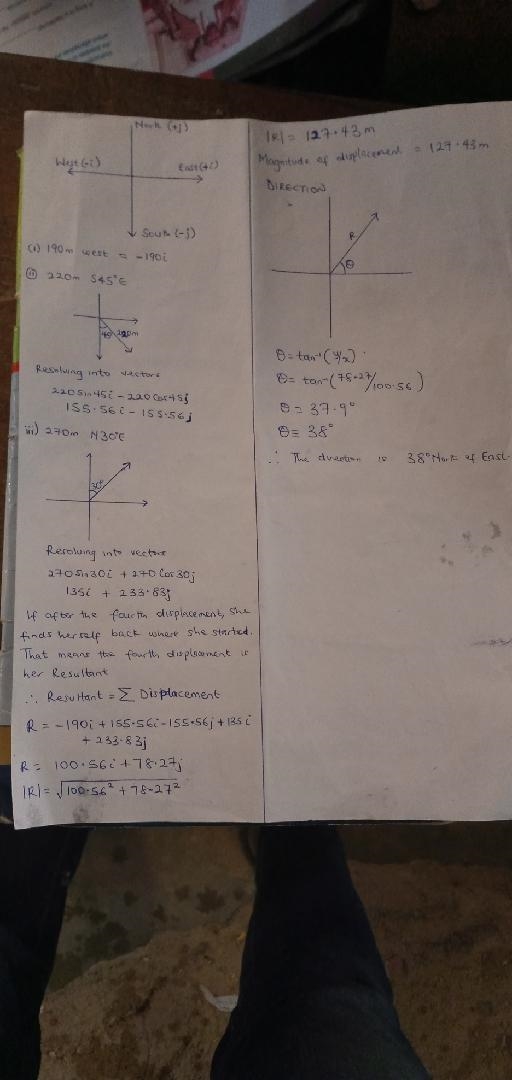 North (+j)
West (-i)
East (+i)
South (-j)
(i) 190m west = -190i
(ii) 220m S45°E
45 220m
Resolving into vectors
220Sin45i - 220Cos45j
155.56i - 155.56j
iii) 270m N30°E
30°
Resolving into vectors
270Sin30i + 270Cos30j
135i + 233.83j
If after the fourth displacement, She
finds herself back where she started.
That means the fourth displacement is
her Resultant
∴ Resultant = Σ Displacement
R = -190i + 155.56i - 155.56j + 135i
+ 233.83j
R = 100.56i + 78.27j
|R| = √100.56² + 78.27²
|R| = 127.43m
Magnitude of displacement = 127.43m
DIRECTION
R
θ
θ = tan⁻¹(y/x)
θ = tan⁻(78.27/100.56)
θ = 37.9°
θ = 38°
∴ The direction is 38° North of East.